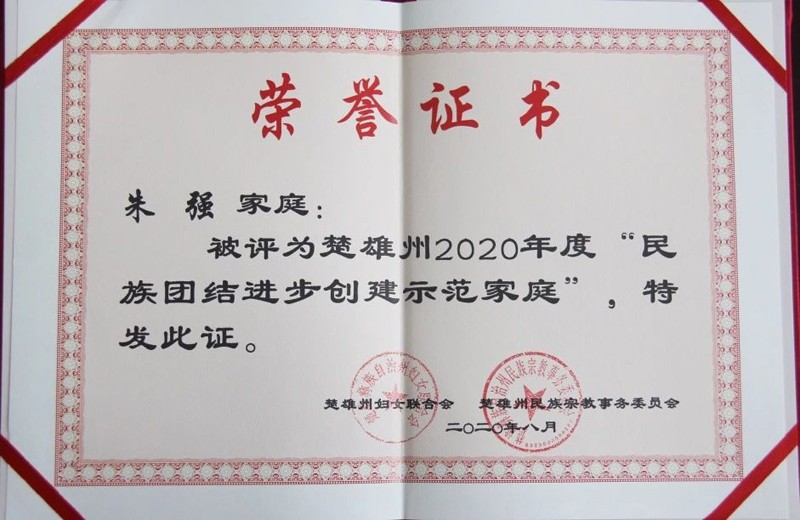 荣誉证书
朱 强 家庭：
被评为楚雄州2020年度“民
族团结进步创建示范家庭”，特
发此证。
楚雄州妇女联合会 楚雄州民族宗教事务委员会
二〇二〇年八月